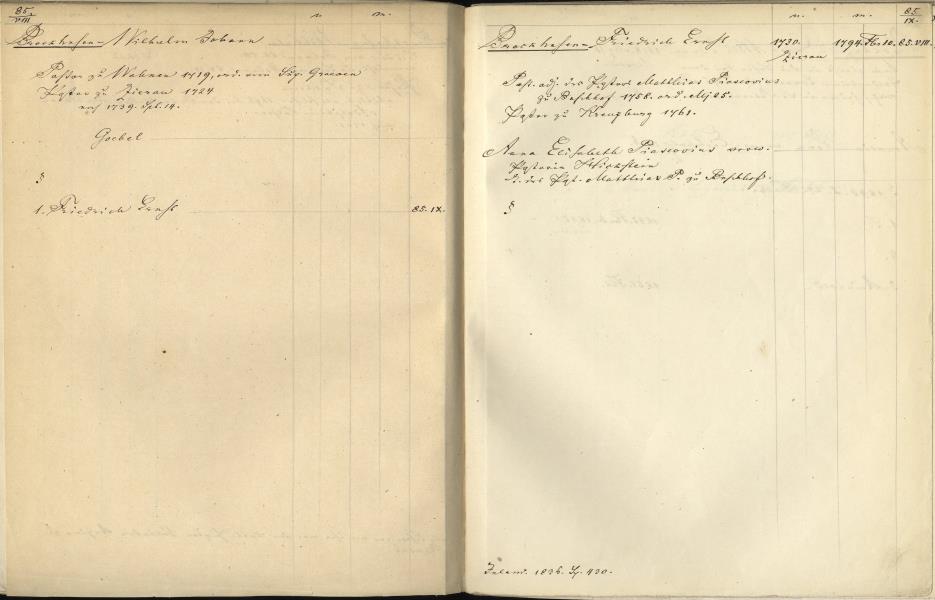 85.
VIII
n. m.
Brockhusen Wilhelm Johann
Pastor zu Wahnen 1719, ord. von Sup. Graven
Pastor zu Zierau 1724
noch 1739. Spt. 14.
Goebel
§
1. Friedrich Ernst 85. IX.
n. m. 85
IX.
Brockhusen Friedrich Ernst 1730. 1794. Febr 10. 85. VIII.
Zierau
Past. adj. des Pastors Matthias Piascovius
zu Buschhof 1758. ord. Mz 25.
Pastor zu Kreuzburg 1761.
Anna Elisabeth Piascovius verw.
Pastorin
T. des Past. Matthias P. zu Buschhof.
§
Inland. 1836. Sp. 430.